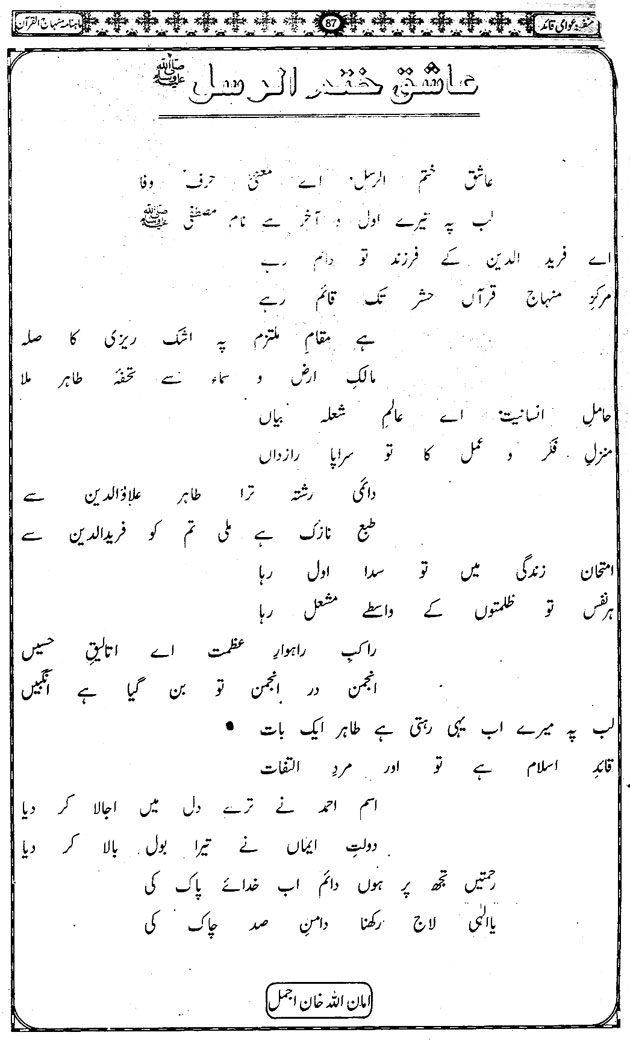 ماہنامہ منہاج القرآن
87
عوامی قائد
عاشق ختم الرسل ﷺ
عاشق ختم الرسل اے معنیٔ حرف وفا
لب پہ تیرے اول و آخر ہے نام مصطفیٰ ﷺ
اے فرید الدین کے فرزند تو دائم رہے
مرکزِ منہاج قرآں حشر تک قائم رہے
ہے مقامِ ملتزم پہ اشک ریزی کا صلہ
مالکِ ارض و سماء سے تحفۂ طاہر ملا
حاملِ انسانیت اے عالمِ شعلہ بیاں
منزلِ فکر و عمل کا تو سراپا رازداں
دائمی رشتہ ترا طاہر علاؤالدین سے
طبع نازک ہے ملی تم کو فریدالدین سے
امتحان زندگی میں تو سدا اول رہا
ہرنفس تو ظلمتوں کے واسطے مشعل رہا
راکبِ راہوارِ عظمت اے اتالیقِ حسیں
انجمن در انجمن تو بن گیا ہے انگبیں
لب پہ میرے اب یہی رہتی ہے طاہر ایک بات
قائدِ اسلام ہے تو اور مردِ التفات
اسم احمد نے ترے دل میں اجالا کر دیا
دولتِ ایماں نے تیرا بول بالا کر دیا
رحمتیں تجھ پر ہوں دائم اب خدائے پاک کی
یاالٰہی لاج رکھنا دامنِ صد چاک کی
امان اللہ خان اجمل